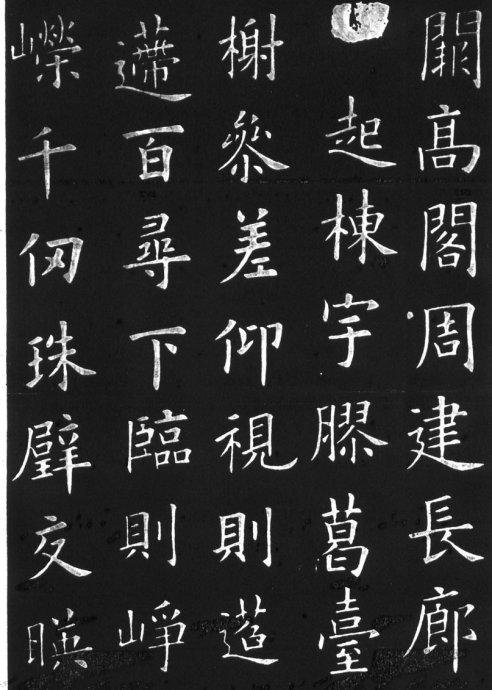 闕高閣周建長廊
起棟宇膠葛臺
榭參差仰視則迢
遰百尋下臨則崢
嶸千仞珠璧交暎